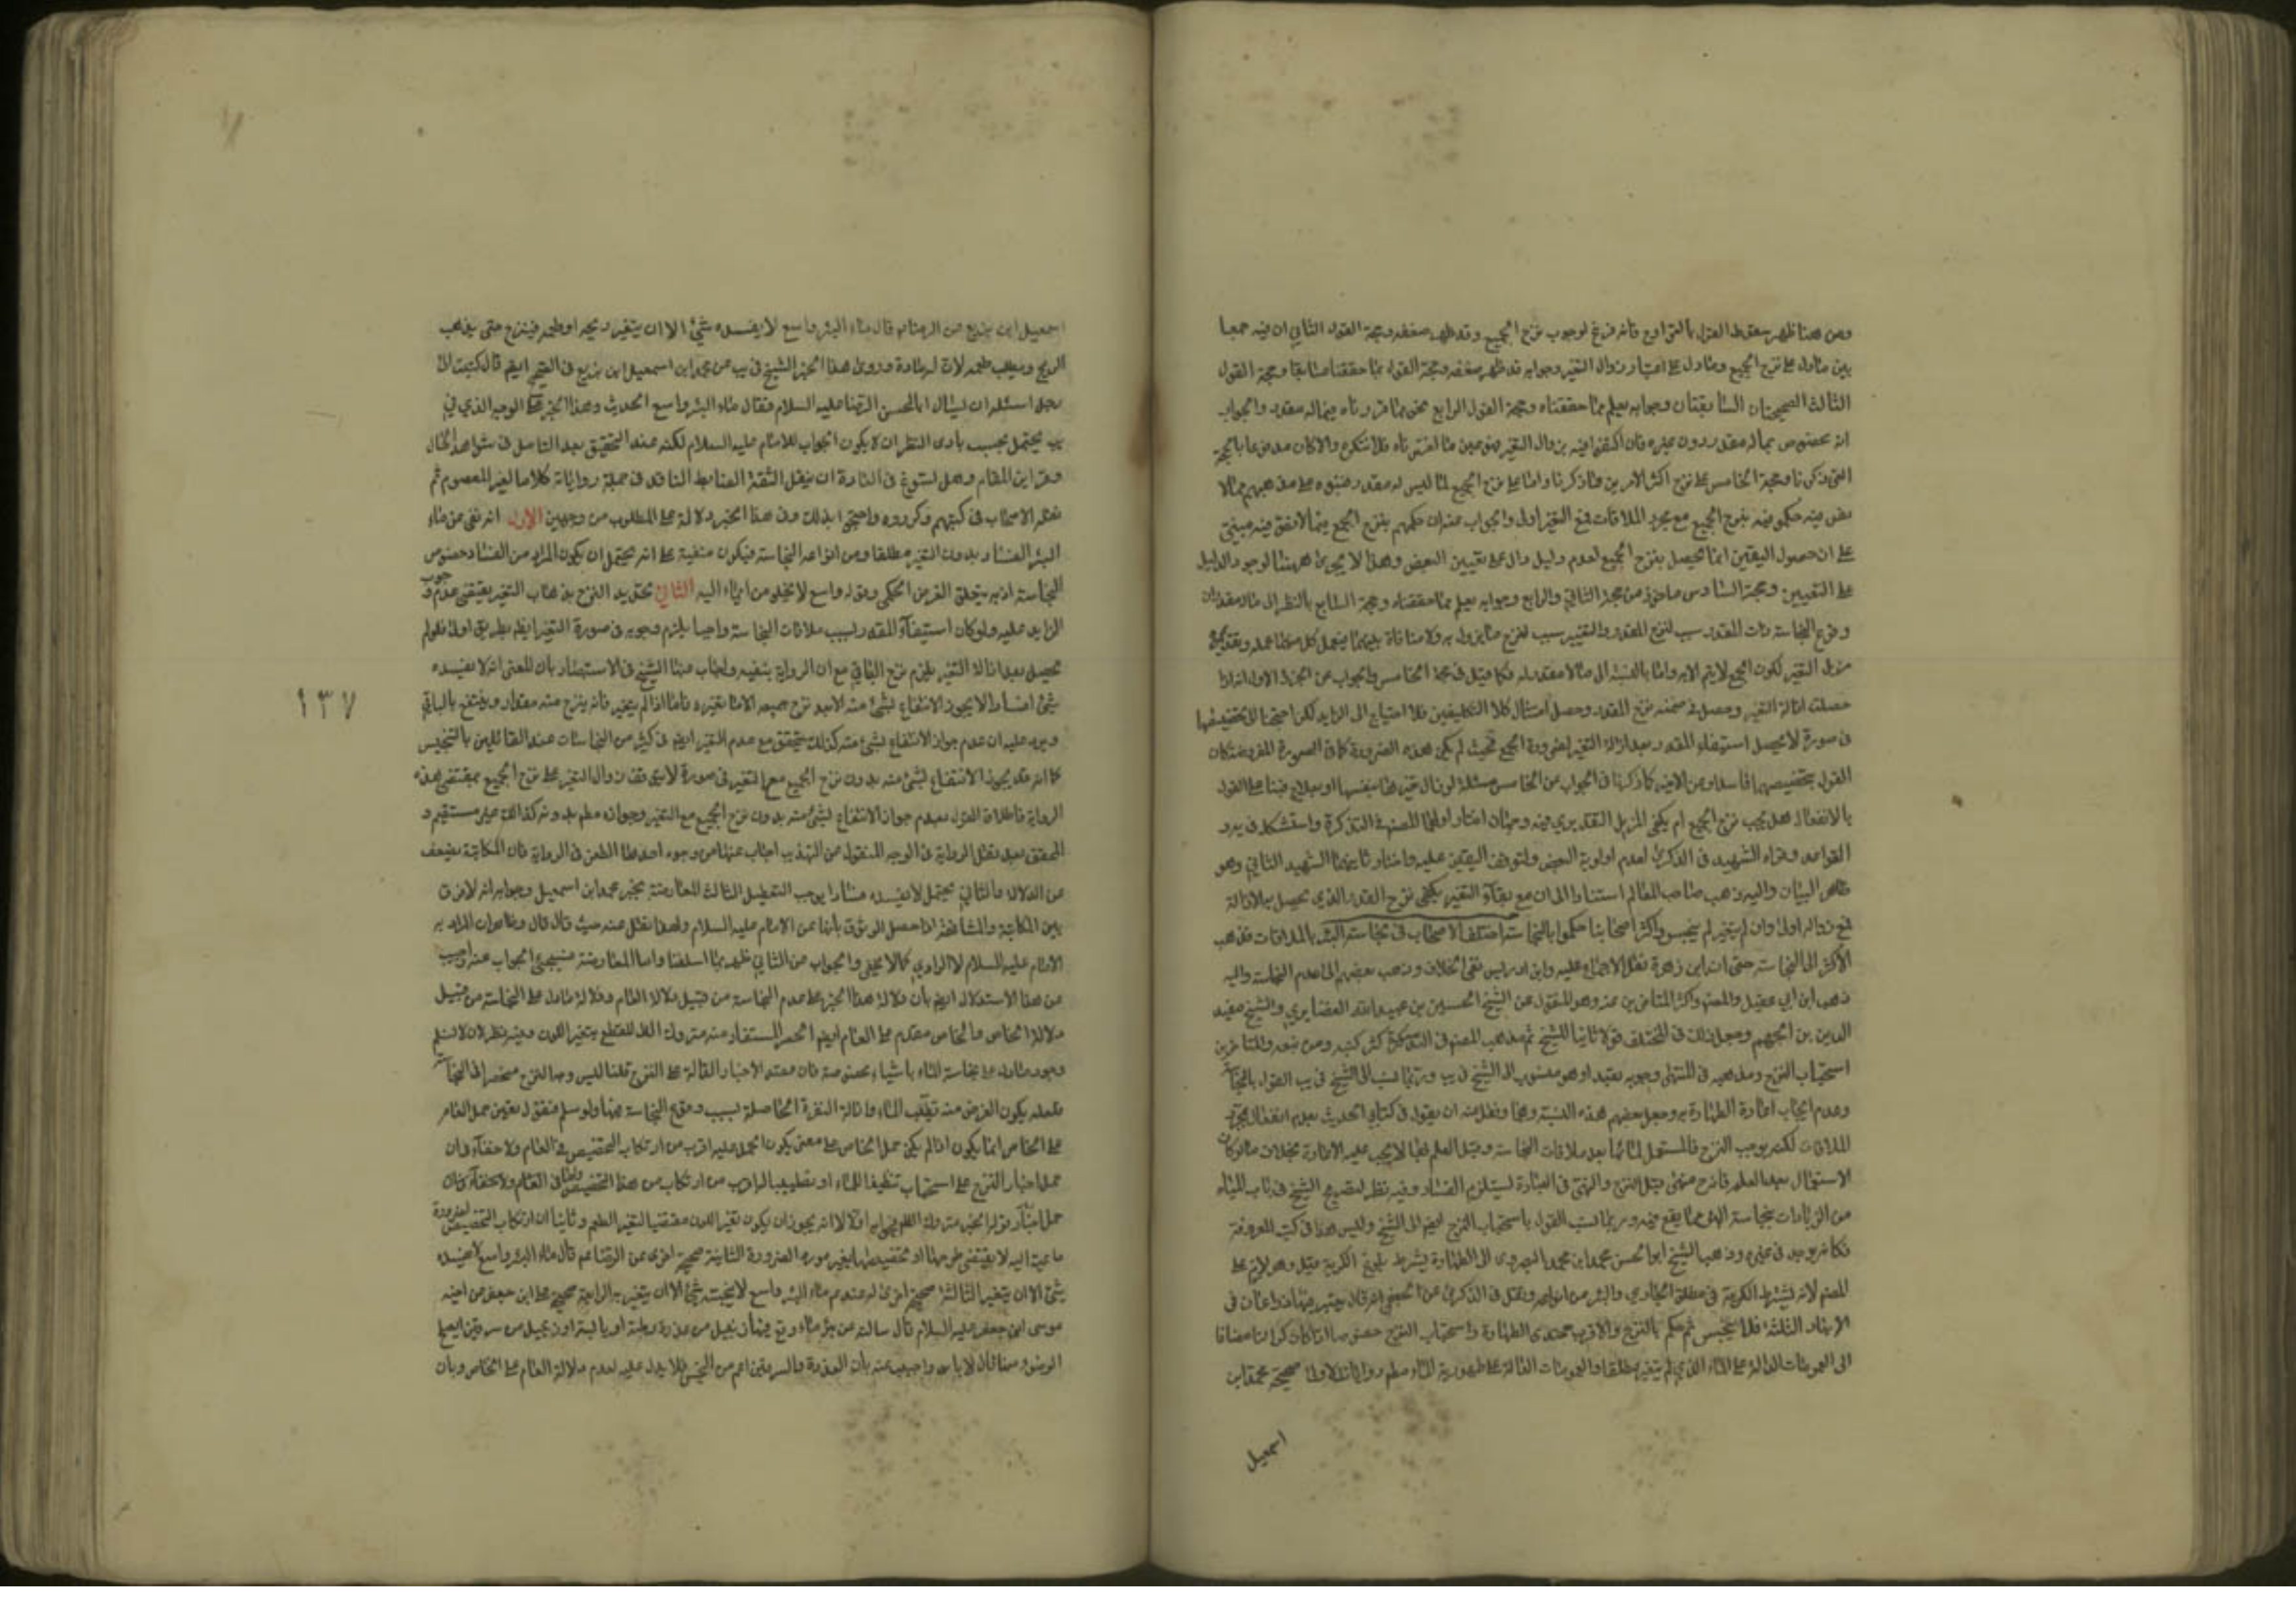 ومن هنا ظهر سقوط القول بالتراوح فانه فرع لوجوب نزح الجميع وقد ظهر ضعفه وحجة القول الثاني ان فيه جمعا
بين مادل على نزح الجميع ومادل على اعتبار زوال التغير وجوابه قد ظهر ضعفه وحجة القول بما حققنا سابقا وحجة القول
الثالث الصحيحتان السابقتان وجوابه يعلم مما حققناه وحجة القول الرابع على ما قررناه فيما له مقدر والجواب
انه مخصوص بماله مقدر دون غيره فان اكتفوا فيه بزوال التغير فهو عين ما اخترناه فلا ننكره والا كان مدفوعا بالحجة
التي ذكرنا وحجة الخامس على نزح اكثر الامرين ما ذكرنا واما على نزح الجميع لما ليس له مقدر
نص فيه حكموا فيه بنزح الجميع مع مجرد الملاقات فمع التغير اولى والجواب عنه ان حكمهم بنزح الجميع فيما لا نص فيه مبني
على ان حصول اليقين انما يحصل بنزح الجميع لعدم دليل دال على تعيين البعض وهذا لا يجري هيهنا لوجود الدليل
على التعيين وحجة السادس ماخوذ من حجة الثاني والرابع وجوابه يعلم مما حققناه وحجة السابع بالنظر الى ماله مقدر ان
وقوع النجاسة ذات المقدر سبب لنزح المقدر والتغير سبب لنزح ما يزول به ولا منافاة بينهما فيعمل كل منهما عمله وتقديم
مزيل التغير لكون الجميع لا يتم الا به واما بالنسبة الى ما لا مقدر له فكما قيل في حجة الخامس والجواب عن الجزء الاول انه اذا
حصلت ازالة التغير وحصل في ضمنه نزح المقدر وحصل امتثال كلا التكليفين فلا احتياج الى الزايد لكن احتجنا الى تخصيصها
في صورة لا يحصل استيفاء المقدر بعد ازالة التغير لضرورة الجمع فحيث لم يكن هذه الضرورة كما في الصورة المفروضة كان
القول بتخصيصها فاسدا ومن الاخير كما ذكرنا في الجواب عن الخامس مسئلة لو زال تغيرها بنفسها او بعلاج فبناء على القول
بالانفعال هل يجب نزح الجميع ام يكفي المزيل التقديري فيه وجهان اختار اولهما المصنف في التذكرة واستشكله في
القواعد وقواه الشهيد في الذكرى لعدم اولوية البعض ولتوقف اليقين عليه واختار ثانيهما الشهيد الثاني وهو
ظاهر البيان واليه ذهب صاحب المعالم استنادا الى ان مع بقاء التغير يكفي نزح القدر الذي يحصل به الازالة
فمع زواله اولى وان لم يتغير لم ينجس واكثر اصحابنا حكموا بالنجاسة اختلف الاصحاب في نجاسة البئر بالملاقات فذهب
الاكثر الى النجاسة حتى ان ابن زهرة نقل الاجماع عليه وابن ادريس نفى الخلاف وذهب بعضهم الى عدم النجاسة واليه
ذهب ابن ابي عقيل والمصنف واكثر المتاخرين عنه وهو المنقول عن الشيخ الحسين بن عبيد الله الغضايري والشيخ مفيد
الدين بن الجهم وجعل ذلك في المختلف قولا ثانيا للشيخ ثم مذهب المصنف في اكثر كتبه ومن تبعه والمتاخرين
استحباب النزح ومذهبه في المنتهى وجوبه تعبدا وهو منسوب الى الشيخ في يب وربما نسب الى الشيخ في يب القول بالنجاسة
وعدم ايجاب اعادة الطهارة به وجعل بعضهم هذه النسبة
الملاقات لكنه يوجب النزح فالمستعمل لمائها بعد ملاقات النجاسة وقبل العلم بها لا يجب عليه الاعادة بخلاف ما لو كان
الاستعمال بعد العلم فانه ح منهي قبل النزح والنهي في العبادة يستلزم الفساد وفيه نظر لتصريح الشيخ في باب المياه
من الزيادات بنجاسة البئر مما يقع فيه وربما نسب القول باستحباب النزح ايضا الى الشيخ وليس هذا في كتبه المعروفة
وذهب الشيخ ابو الحسن محمد ابن محمد البصروي الى الطهارة بشرط بلوغ الكرية
المصنف لانه يشترط الكرية في مطلق الجاري والبئر من انواعه ونقل في الذكرى عن الجعفي انه كان يعتبر فيها ذراعان في
الابعاد الثلثة فلا ينجس ثم حكم بالنزح والاقرب عندي الطهارة واستحباب النزح خصوصا اذا كان كرا لنا مضافا
الى العمومات الدالة على الماء الذي لم يتغير مطلقا والعمومات الدالة على طهورية الماء مطلقا روايات الاولى صحيحة محمد ابن
اسمعيل
اسمعيل ابن بزيع عن الرضا ع قال ماء البئر واسع لا يفسده شيء الا ان يتغير ريحه او طعمه فينزح حتى يذهب
الريح ويطيب طعمه لان له مادة وروى هذا الخبر الشيخ في يب عن محمد ابن اسمعيل ابن بزيع في الصحيح ايضا قال كتبت الى
رجل اسئله ان يسئال ابا الحسن الرضا عليه السلام فقال ماء البئر واسع الحديث وهذا الخبر على الوجه الذي في
يب يحتمل بحسب بادى النظر ان لا يكون الجواب للامام عليه السلام لكنه عند التحقيق بعد التامل في شواهد الحال
وقراين المقام وهل يسوغ في العادة ان ينقل الثقة الضابط الناقد في جملة رواياته كلاما لغير المعصوم ثم
نقله الاصحاب في كتبهم وكرروه واحتجوا بذلك وفي هذا الخبر دلالة على المطلوب من وجهين الاول انه نفى عن ماء
البئر الفساد بدون التغير مطلقا ومن انواعه النجاسة فيكون منفية على انه يحتمل ان يكون المراد من الفساد خصوص
النجاسة اذ به يتعلق الغرض الحكمي وقوله واسع لا يخلو من ايماء اليه الثاني تحديد النزح بذهاب التغير يقتضي عدم وجوب
الزايد عليه ولو كان استيفاء المقدر بسبب ملاقات النجاسة واجبا يلزم وجوبه في صورة التغير ايضا بطريق اولى فلو لم
يحصل بعد ازالة التغير يلزم نزح الباقي مع ان الرواية ينفيه واجاب عنها الشيخ في الاستبصار بان المعنى انه لا يفسده
شيء افسادا لا يجوز الانتفاع بشيء منه الا بعد نزح جميعه الا ما يغيره فاما اذا لم يتغير فانه ينزح منه مقدار وينتفع بالباقي
ويرد عليه ان عدم جواز الانتفاع بشيء منه كذلك يتحقق مع عدم التغير ايضا في كثير من النجاسات عند القائلين بالتنجيس
كما انه قد يجوز الانتفاع بشيء منه بدون نزح الجميع مع التغير في صورة لا يتوقف زوال التغير على نزح الجميع بمقتضى هذه
الرواية فاطلاق القول بعدم جواز الانتفاع بشيء منه بدون نزح الجميع مع التغير وجوازه مطلقا بدونه كذلك غير مستقيم و
المحقق بعد نقل الرواية في الوجه المنقول من التهذيب اجاب عنها من وجوه احدها الطعن في الرواية فان المكاتبة يضعف
عن الدلالة والثاني يحتمل لا يفسده فسادا يوجب التعطيل الثالث المعارضة بخبر محمد ابن اسمعيل وجوابه انه لا فرق
بين المكاتبة والمشافهة اذا حصل الوثوق بانها من الامام عليه السلام ولهذا نقل عنه حيث قال قال وظاهر ان المراد به
الامام عليه السلام لا الراوي كما لا يخفى والجواب عن الثاني ظهر مما اسلفنا واما المعارضة فسيجيئ الجواب عنه واجيب
عن هذا الاستدلال ايضا بان دلالة هذا الخبر على عدم النجاسة من قبيل دلالة العام ودلالة مادل على النجاسة من قبيل
دلالة الخاص والخاص مقدم على العام ايضا الحصر المستفاد منه متروك الظاهر للقطع بتغير اللون وفيه نظر لانا لا نسلم
وجود مادل على نجاسة الماء باشياء مخصوصة فان معتمد الاخبار الدالة على النزح قلنا ليس وجه النزح منحصرا في النجاسة
فلعله يكون الغرض منه تطيب الماء وازالة النفرة الحاصلة بسبب وقوع النجاسة فيها ولو سلم فنقول تعين حمل العام
على الخاص انما يكون اذا لم يكن حمل الخاص على معنى يكون الحمل عليه اقرب من ارتكاب التخصيص في العام ولا خفاء في ان
حمل اخبار النزح على استحباب تنظيفا للماء او تطييبا له اقرب من ارتكاب مثل هذا التخصيص في العام ولا خفاء
يجوز ان يكون تغير اللون مقتضيا لتغير الطعم وثانيا ان ارتكاب التخصيص لضرورة
داعية اليه لا يقتضي طرحها او تخصيصها بغير مورد الضرورة الثانية صحيحة اخرى عن الرضا ع قال ماء البئر واسع لا يفسده
شيء الا ان يتغير الثالثة صحيحة اخرى له عنه ع ماء البئر واسع لا ينجسه شيء الا ان يتغير به الرابعة صحيحة على ابن جعفر عن اخيه
موسى ابن جعفر عليه السلام قال سالته عن بئر ماء وقع فيها زنبيل من عذرة رطبة او يابسة او زنبيل من سرقين ايصلح
الوضوء منها قال لا باس واجيب عنه بان العذرة والسرقين اعم من النجس فلا يدل عليه لعدم دلالة العام على الخاص وبان
١٣٧